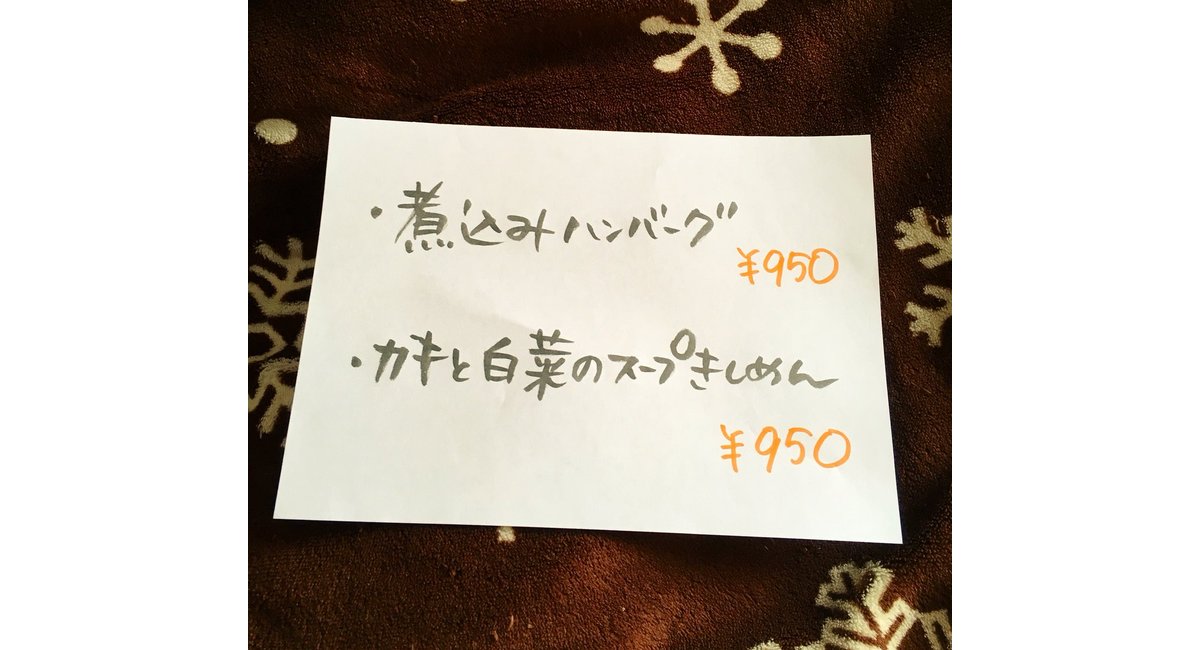 ・煮込みハンバーグ
¥950
・カキと白菜のスープきしめん
¥950